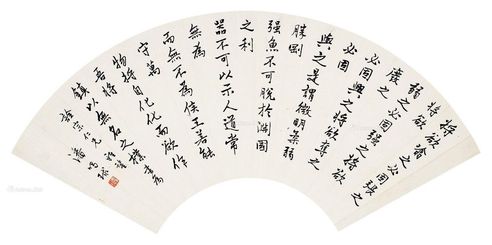 將欲翕之必固張之
將欲
弱之必固强之將欲
廢之
必固興之將欲奪之
必固
與之是謂微明柔弱
勝剛
强魚不可脫於淵國
之利
器不可以示人道常
無為
而無不為侯王若能
守萬
物將自化化而欲作
吾將
鎮以無名之樸
宗仁兄
潘鳴球